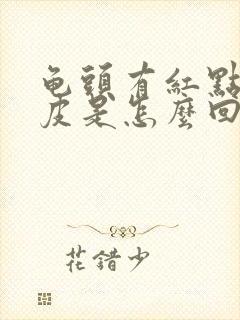 龟頭有紅點
皮是怎麼回
花錯少